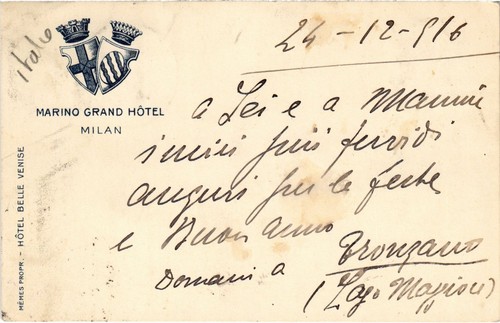 Italo
24 - 12 - 916
MARINO GRAND HÔTEL
MILAN
a Lei e a Mammà
i miei più fervidi
auguri per le feste
e Buon anno
Domani a Tronzano
(Lago Maggiore)
MÊMES PROPR. - HÔTEL BELLE VENISE